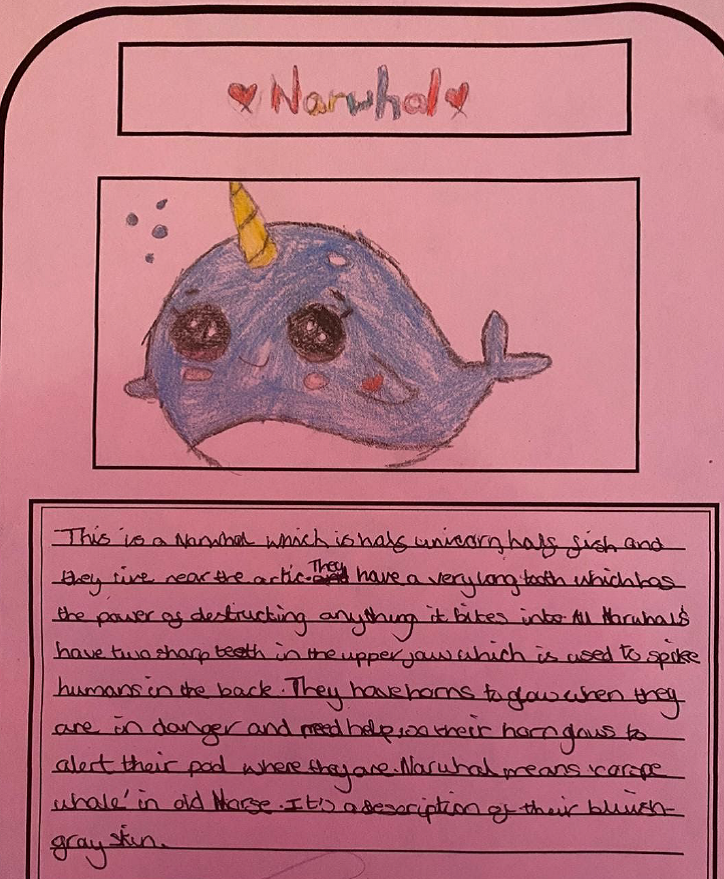 Narwhal
This is a Narwhal which is half unicorn, half fish and
they live near the artic. They have a very long tooth which has
the power of destructing anything it bites into. All Narwhals
have two sharp teeth in the upper jaw which is used to spike
humans in the back. They have horns to glow when they
are in danger and need help, so their horn glows to
alert their pod where they are. Narwhal means 'corpse
whale' in old Norse. It's a description of their bluish-
gray skin.